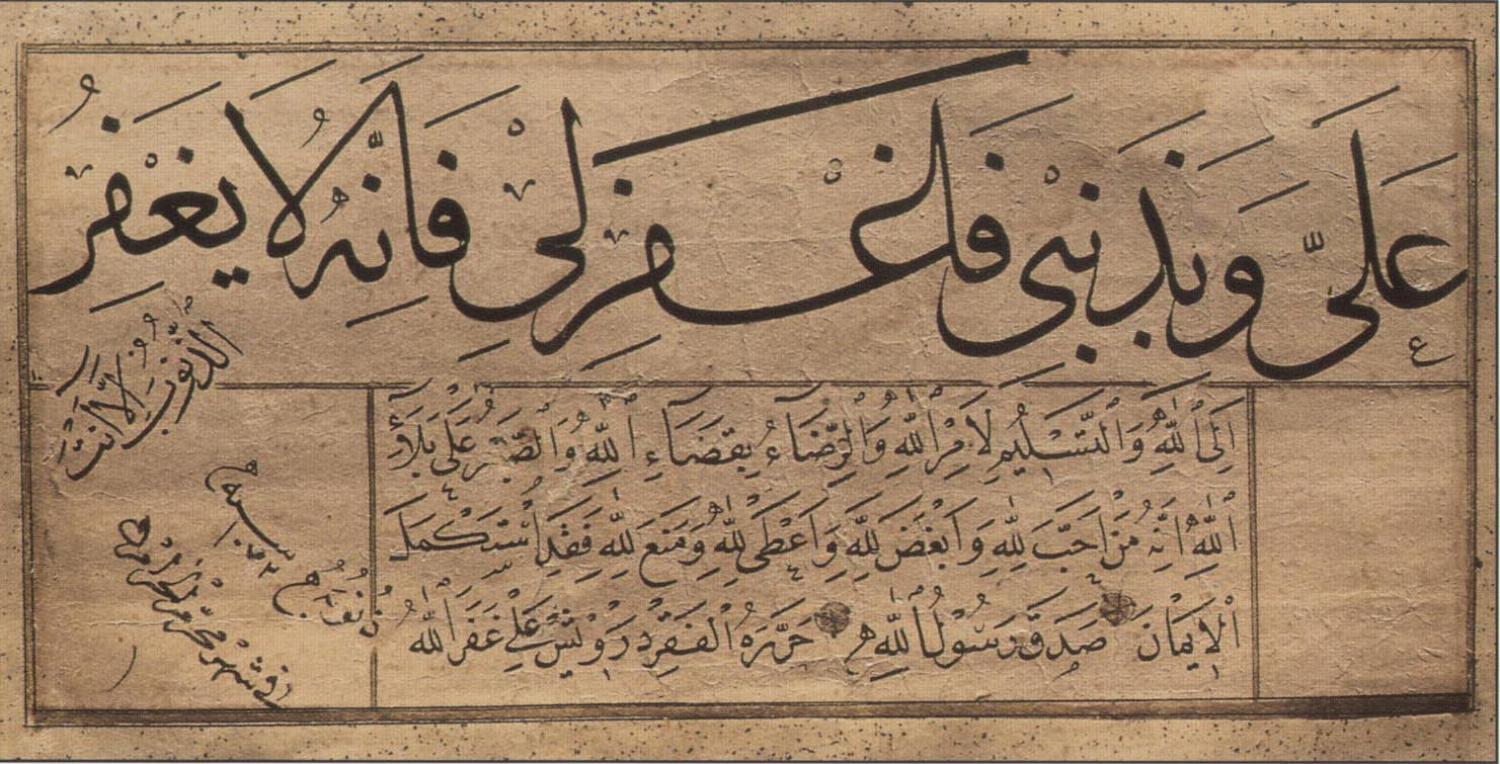 عَلَيَّ وَبِذَنْبِي فَاغْفِرْ لِي فَاِنَّهُ لَا يَغْفِرُ
الذُّنُوبَ اِلَّا اَنْتَ
اِلَى اللهِ وَالتَّسْلِيمُ لِاَمْرِ اللهِ وَالرِّضَاءُ بِقَضَاءِ اللهِ وَالصَّبْرُ عَلَى بَلَاءِ
اللهِ اِنَّهُ مَنْ اَحَبَّ لِلّٰهِ وَاَبْغَضَ لِلّٰهِ وَاَعْطَى لِلّٰهِ وَمَنَعَ لِلّٰهِ فَقَدِ اسْتَكْمَلَ
الْاِيمَانَ صَدَقَ رَسُولُ اللهِ حَرَّرَهُ الْفَقِيرُ دَرْوِيشْ عَلِي غَفَرَ اللهُ
ذُنُوبَهُ
فِي شَهْرِ مُحَرَّمِ الْحَرَامِ
سنة